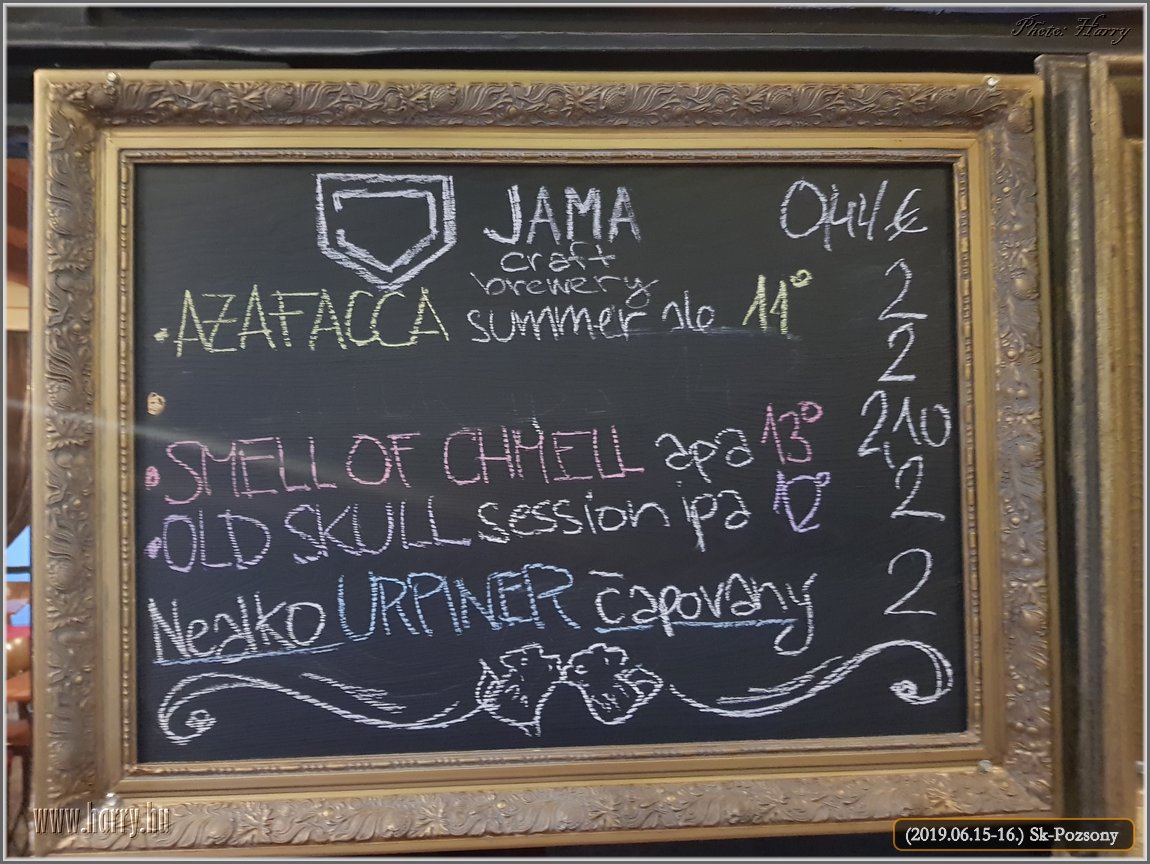 Photo: Harry
JAMA 0,4l/€
craft
brewery
AZAFACCA summer ale 11° 2
2
SMELL OF CHMELL apa 13° 2,10
OLD SKULL session ipa 10° 2
Nealko URPINER čapovany 2
www.harry.hu
(2019.06.15-16.) Sk-Pozsony